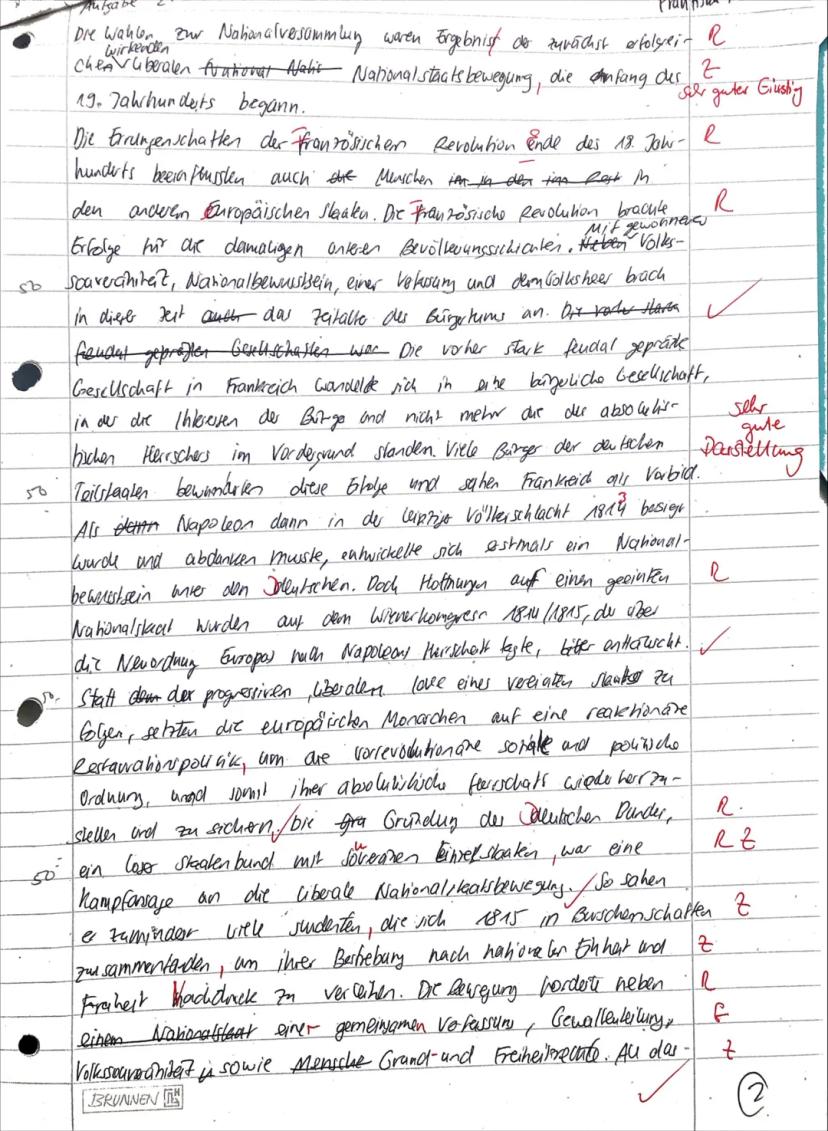 Aufgabe 2
Die Wahlen zur Nationalversammlung waren Ergebniss der zunächst erfolgrei- R
wirkenden
chen liberalen Nationalstaatsbewegung, die Anfang des Z
sehr guter Einstieg
19. Jahrhunderts begann.
Die Errungenschaften der Französischen Revolution Ende des 18. Jahr- R
hunderts beeinflussten auch die Menschen in
den anderen Europäischen Staaten. Die Französische Revolution brachte R
Mit gewonnener
Erfolge für die damaligen unteren Bevölkerungsschichten. Neben Volks-
souveränität, Nationalbewusstsein, einer Verfassung und dem Volksheer brach
in dieser Zeit auch das Zeitalter des Bürgertums an. Die vorher starke
feudal geprägten Gesellschaften war Die vorher stark feudal geprägte
Gesellschaft in Frankreich wandelde sich in eine bürgerliche Gesellschaft,
in der die Interessen der Bürger und nicht mehr die des absolutis- sehr gute Darstellung
tischen Herrschers im Vordergrund standen. Viele Bürger der deutschen
Teilstaaten bewunderten diese Erfolge und sahen Frankreich als Vorbid.
Als dann Napoleon dann in der Leipziger Völkerschlacht 1813 besiegt
wurde und abdanken musste, entwickelte sich erstmals ein National-
bewusstsein unter den Deutschen. Doch Hoffnungen auf einen geeinten R
Nationalstaat wurden auf dem Wienerkongress 1814/1815, der über
die Neuordnung Europas nach Napoleons Herrschaft tagte, bitter enttäuscht.
Statt dem der progressiven, liberalen Idee eines vereinten Staates zu
folgen, setzten die europäischen Monarchen auf eine reaktionäre
Restaurationspolitik, um die vorrevolutionäre soziale und politische
Ordnung, und somit ihrer absolutistische Herrschaft wiederherzu-
stellen und zu sichern. Die Gründung des Deutschen Bundes, R.
ein loser Staatenbund mit souveränen Einzelstaaten, war eine R Z
Kampfansage an die liberale Nationalstaatsbewegung. So sahen
es zumindest viele Studenten, die sich 1815 in Burschenschaften Z
zusammenfanden, um ihrer Bestrebung nach nationaler Einheit und Z
Freiheit Nachdruck zu verleihen. Die Bewegung forderte neben R
einem Nationalstaat einer gemeinsamen Verfassung, Gewaltenteilung, G
Volkssouveränität sowie Mensche Grund- und Freiheitsrechte. All das- Z
BRUNNEN
2